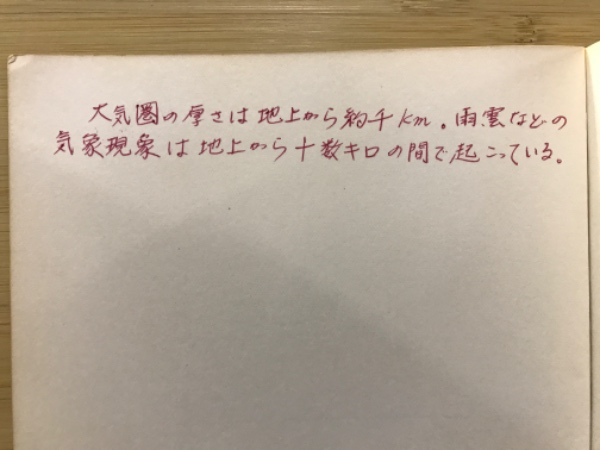 大気圏の厚さは地上から約千km。雨雲などの
気象現象は地上から十数キロの間で起こっている。